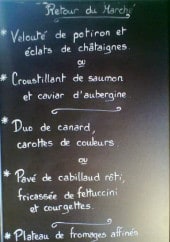 Retour du Marché
* Velouté de potiron et
éclats de châtaignes.
ou
* Croustillant de saumon
et caviar d'aubergine
* Duo de canard,
carottes de couleurs
ou
* Pavé de cabillaud rôti,
fricassée de fettuccini
et courgettes.
* Plateau de fromages affinés